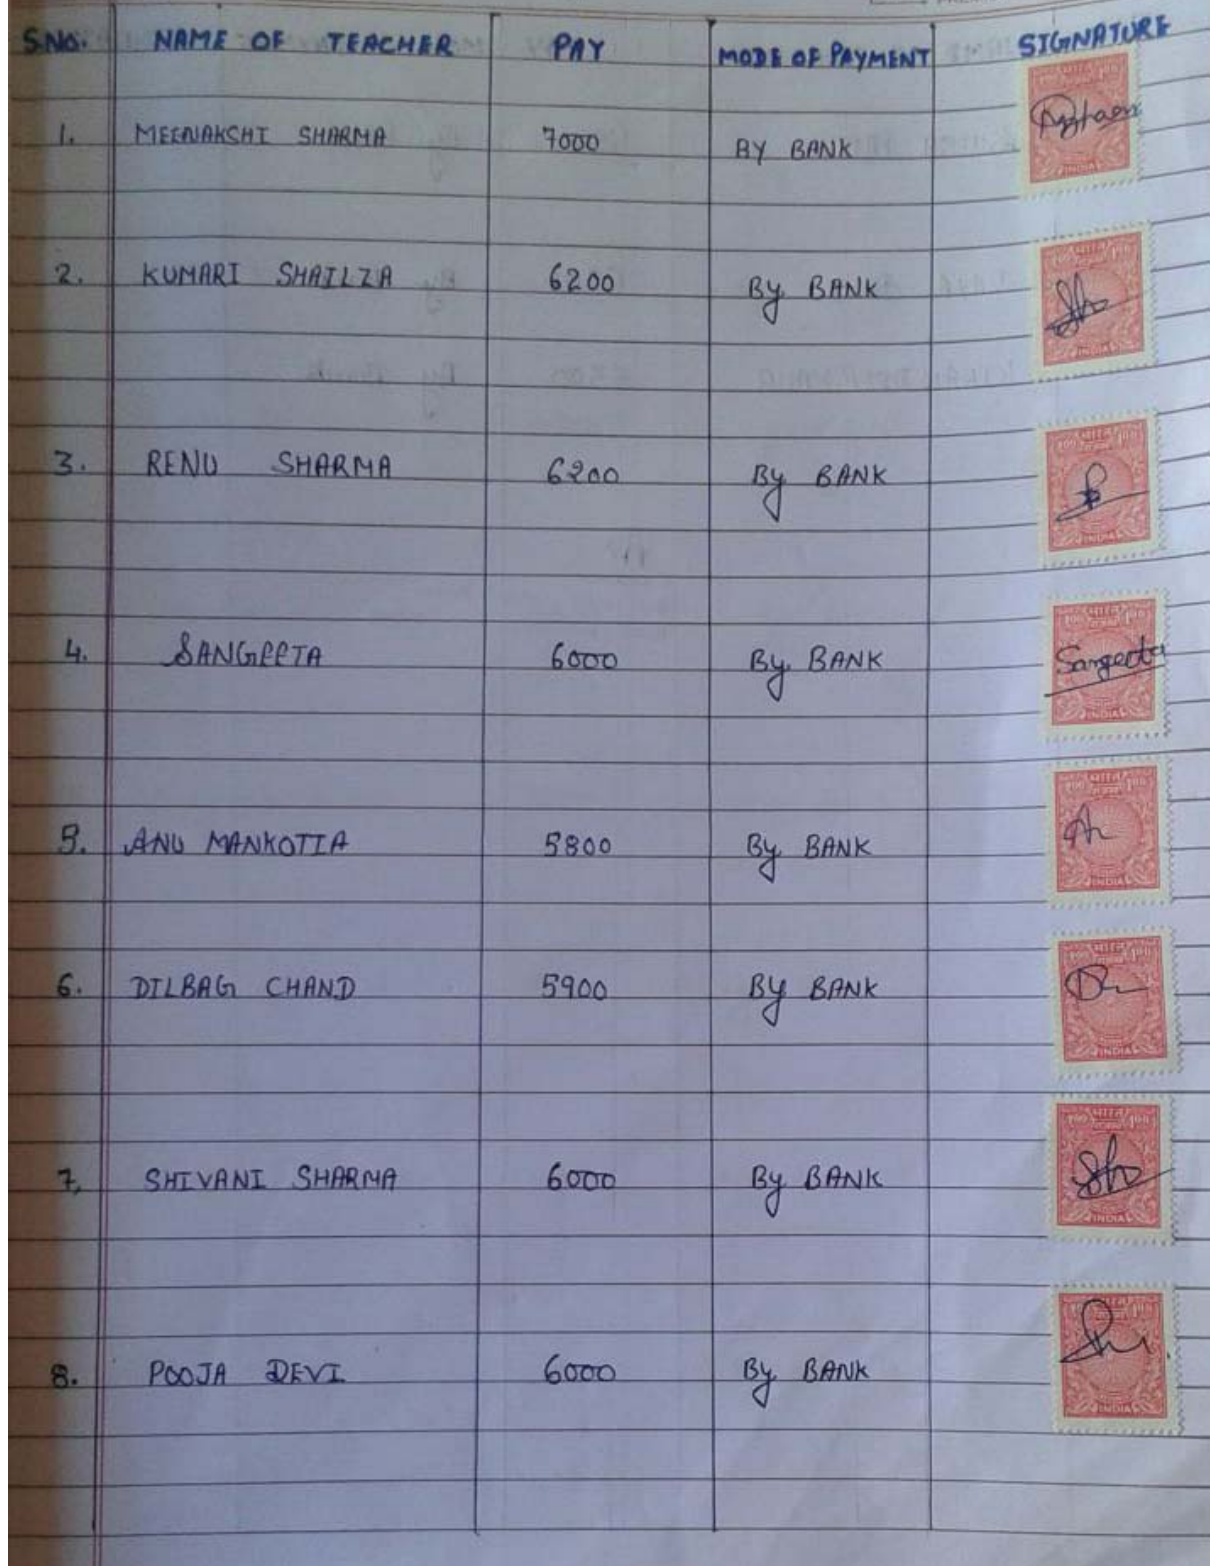 S.NO. NAME OF TEACHER PAY MODE OF PAYMENT SIGNATURE
1. MEENAKSHI SHARMA 7000 BY BANK
2. KUMARI SHAILZA 6200 By BANK
3. RENU SHARMA 6200 By BANK
4. SANGEETA 6000 By BANK Sangeeta
5. ANU MANKOTIA 5800 By BANK
6. DILBAG CHAND 5900 By BANK
7. SHIVANI SHARMA 6000 By BANK
8. POOJA DEVI 6000 By BANK